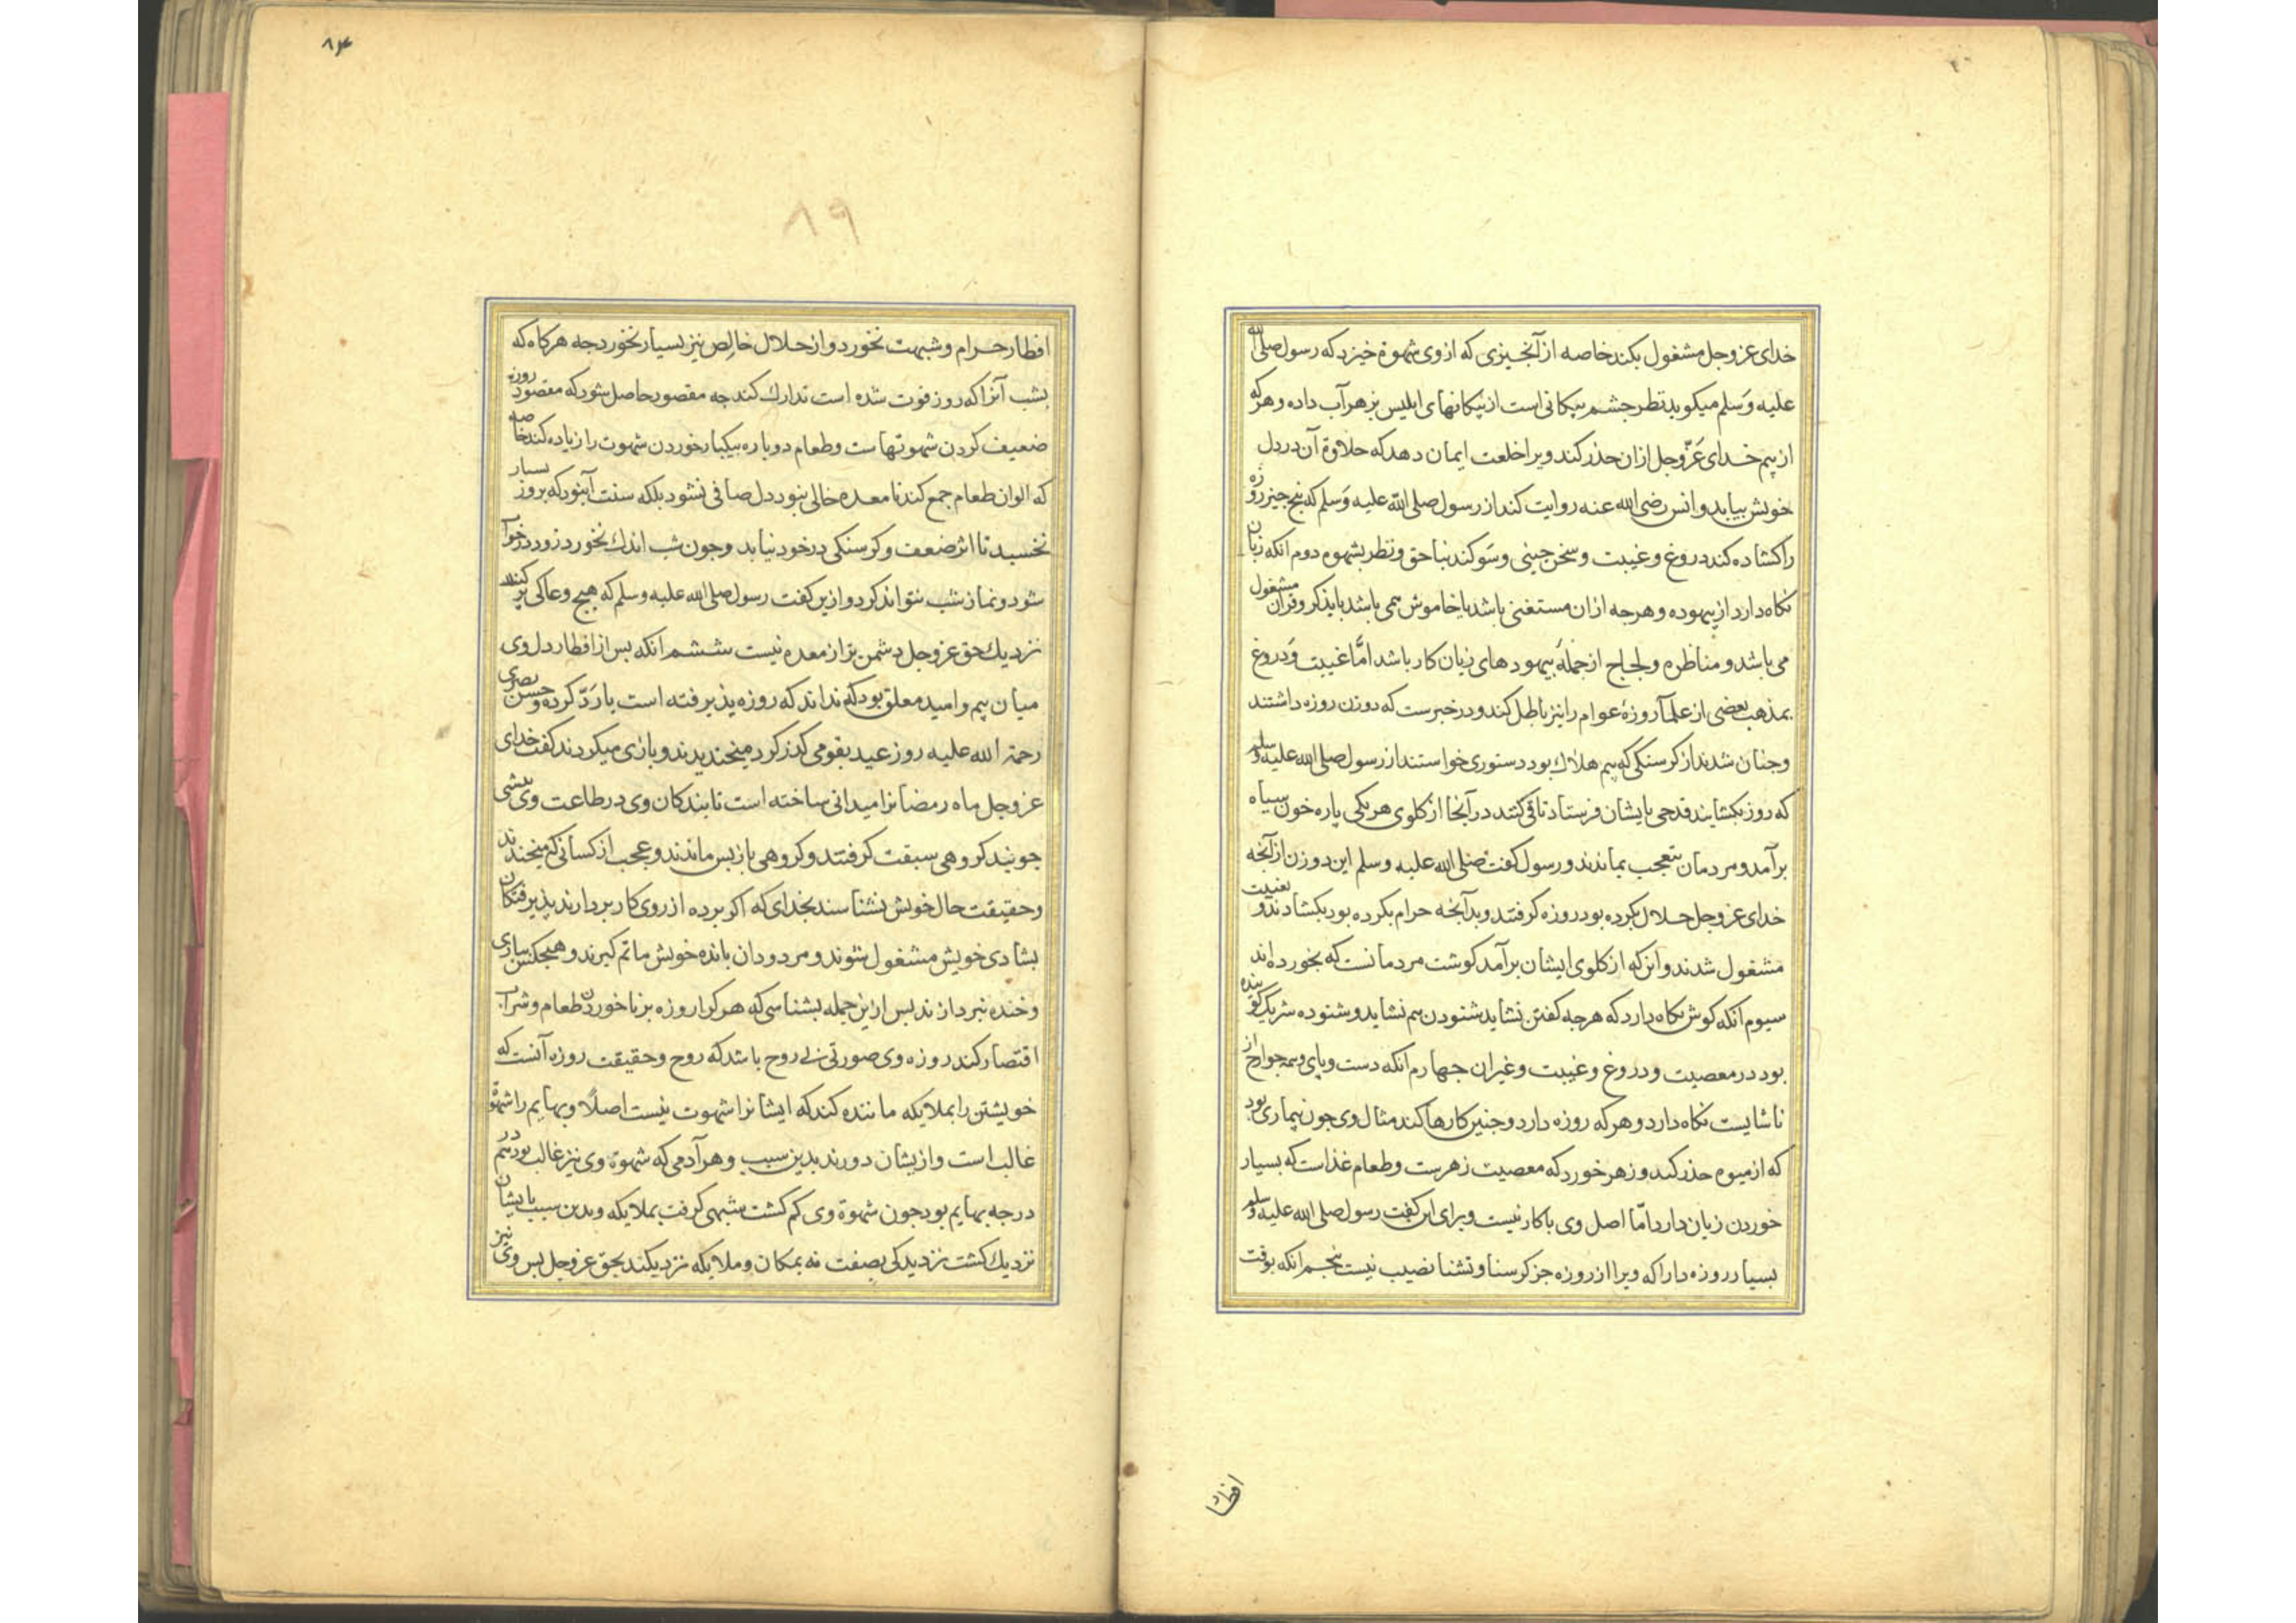 خدای عز وجل مشغول بکند خاصه از آنجیزی که از وی شهوة خیزد که رسول صلی الله
علیه وسلم میکوید نظر جشم پیکانی است از پیکانهای ابلیس بزهر آب داده و هر که
از بیم خدای عز وجل ازان حذر کند ویرا خلعت ایمان دهد که حلاوة آن در دل
خویش بیابد و انس رضی الله عنه روایت کند از رسول صلی الله علیه وسلم که پنج جیز روزه
را کشاده کند دروغ و غیبت و سخن جینی و سوکند بناحق و نظر بشهوه دوم انکه زبان
نکاه دارد از بیهوده و هرجه ازان مستغنی باشد یا خاموش می باشد یا بذکر و قرآن مشغول
می باشد و مناظره و لجاج از جمله بیهودهای زیان کار باشد اما غیبت و دروغ
بمذهب بعضی از علما روزهٔ عوام را نیز باطل کند و در خبرست که دو زن روزه داشتند
وجنان شدند از کرسنکی که بیم هلاک بود دستوری خواستند از رسول صلی الله علیه وسلم
که روزه بکشایند قدحی بایشان فرستاد تا قی کنند در آنجا از کلوی هر یکی پاره خون سیاه
برآمد و مردمان بتعجب بماندند و رسول کفت صلی الله علیه وسلم این دو زن از آنجه
خدای عز وجل حلال بکرده بود روزه کرفتند و بدآنجه حرام بکرده بود بکشادند و بغیبت
مشغول شدند و اینکه از کلوی ایشان برآمد کوشت مردمانست که بخورده اند
سیوم انکه کوش نکاه دارد که هرجه کفتن نشاید شنودن هم نشاید و شنوده شریک کوینده
بود در معصیت و دروغ و غیبت و غیران جهارم انکه دست و پای و همه جوارح از
ناشایست نکاه دارد و هر که روزه دارد و جنین کارها کند مثال وی جون بیماری بود
که از میوه حذر کند و زهر خورد که معصیت زهرست و طعام غذاست که بسیار
خوردن زیان دارد اما اصل وی باکار نیست و برای این کفت رسول صلی الله علیه وسلم
بسیار روزه دارا که ویرا از روزه جز کرسنا و تشنا نصیب نیست پنجم انکه بوقت
افطار
۸۴
۸۹
افطار حرام و شبهت نخورد و از حلال خالص نیز بسیار نخورد جه هرکاه که
بشب آنرا که روز فوت شده است تدارک کند جه مقصود حاصل شود که مقصود روزه
ضعیف کردن شهوتهاست و طعام دوباره بیکبار خوردن شهوت را زیاده کند خاصه
که الوان طعام جمع کند تا معده خالی نبود دل صافی نشود بلکه سنت آنبود که بروز بسیار
نخسبد تا اثر ضعف و کرسنکی در خود نیابد و جون شب اندک نخورد زود در خواب
شود و نماز شب نتواند کرد و ازین کفت رسول صلی الله علیه وسلم که هیج وعاکی پر کنند
نزدیک حق عز وجل دشمن تر از معده نیست ششم انکه بس از افطار دل وی
میان بیم و امید معلق بود که نداند که روزه پذیرفته است یا رد کرده و حسن بصری
رحمة الله علیه روز عید بقومی کذر کرد میخندیدند و بازی میکردند کفت خدای
عز وجل ماه رمضانرا میدانی ساخته است تا بندکان وی در طاعت وی بیشی
جویند کروهی سبقت کرفتند و کروهی بازپس ماندند و عجب از کسانی که میخندند
و حقیقت حال خویش نشناسند بخدای که اکر برده از روی کار بردارند پذیرفتکان
بشادی خویش مشغول شوند و مردودان بانده خویش ماتم کیرند و هیجکس ببازی
و خنده نپردازند بس ازین جمله بشناسی که هر که از روزه بر ناخوردن طعام و شراب
اقتصار کند روزه وی صورتی بی روح باشد که روح و حقیقت روزه آنست که
خویشتن را بملایکه ماننده کند که ایشانرا شهوت نیست اصلا و بهایم را شهوة
غالب است و ازیشان دورند بدین سبب و هر آدمی که شهوة وی نیز غالب بود هم در
درجه بهایم بود جون شهوة وی کم کشت شبهی کرفت بملایکه و بدین سبب بایشان
نزدیک کشت نزدیکی بصفت نه بمکان و ملایکه نزدیکند بحق عز وجل بس وی نیز